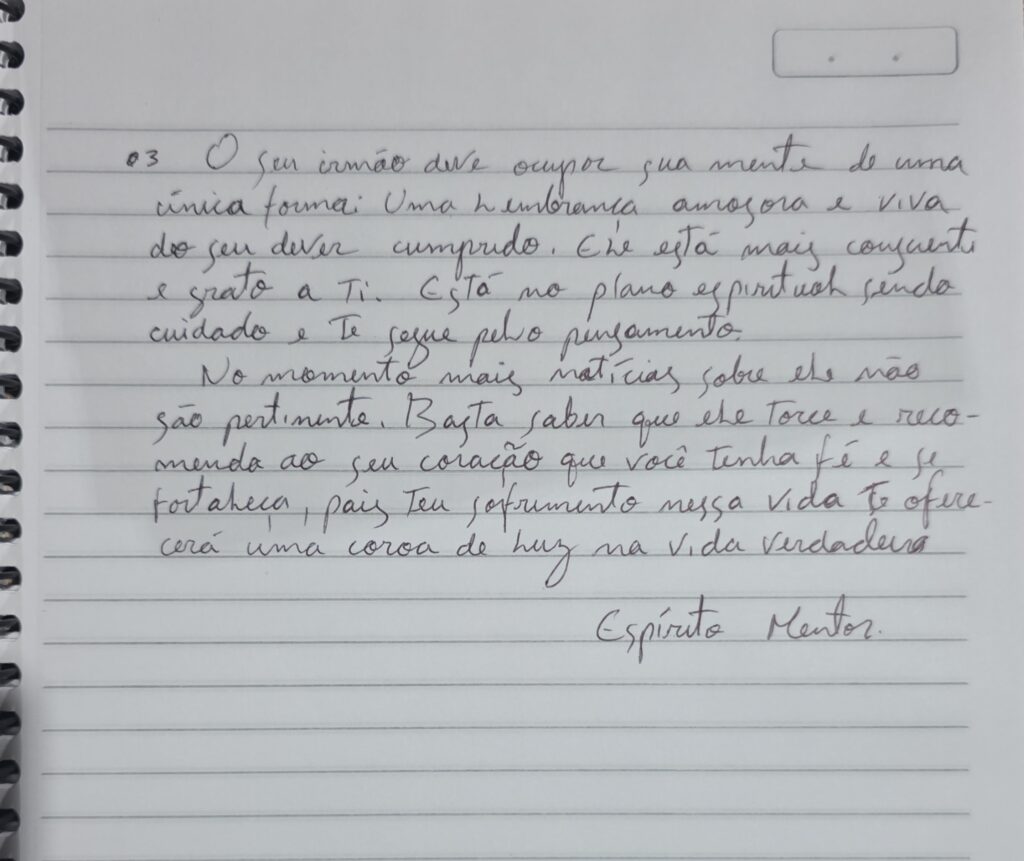 03 O seu irmão deve ocupar sua mente de uma
única forma: Uma lembrança amorosa e viva
do seu dever cumprido. Ele está mais consciente
e grato a Ti. Está no plano espiritual sendo
cuidado e Te segue pelo pensamento.
No momento mais notícias sobre ele não
são pertinente. Basta saber que ele torce e reco-
menda ao seu coração que você tenha fé e se
fortaleça, pois Teu sofrimento nessa vida Te ofere-
cerá uma coroa de luz na vida verdadeira
Espírito Mentor.